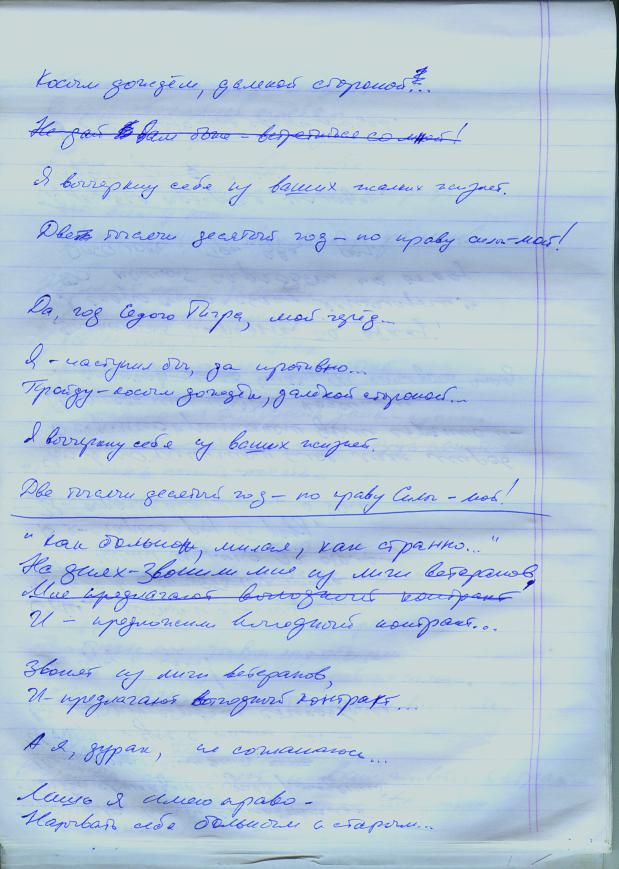 Косым дождём, далекой стороной!...
Не дай Вам боже – встретиться со мной!
Я вычеркну себя из ваших жалких жизней.
Две тысячи десятый год – по праву силы – мой!
Да, год Седого Тигра, мой черёд...
Я – наступил бы, да противно...
Пройду – косым дождём, далёкой стороной...
Я вычеркну себя из ваших жизней.
Две тысячи десятый год – по праву Силы – мой!
"Как больно, милая, как странно..."
На днях – Звонили мне из лиги ветеранов,
Мне предлагают выгодный контракт
И – предложили выгодный контракт...
Звонят из лиги ветеранов,
И – предлагают выгодный контракт...
А я, дурак, не соглашаюсь...
Лишь я имею право –
Называть себя больным и старым...